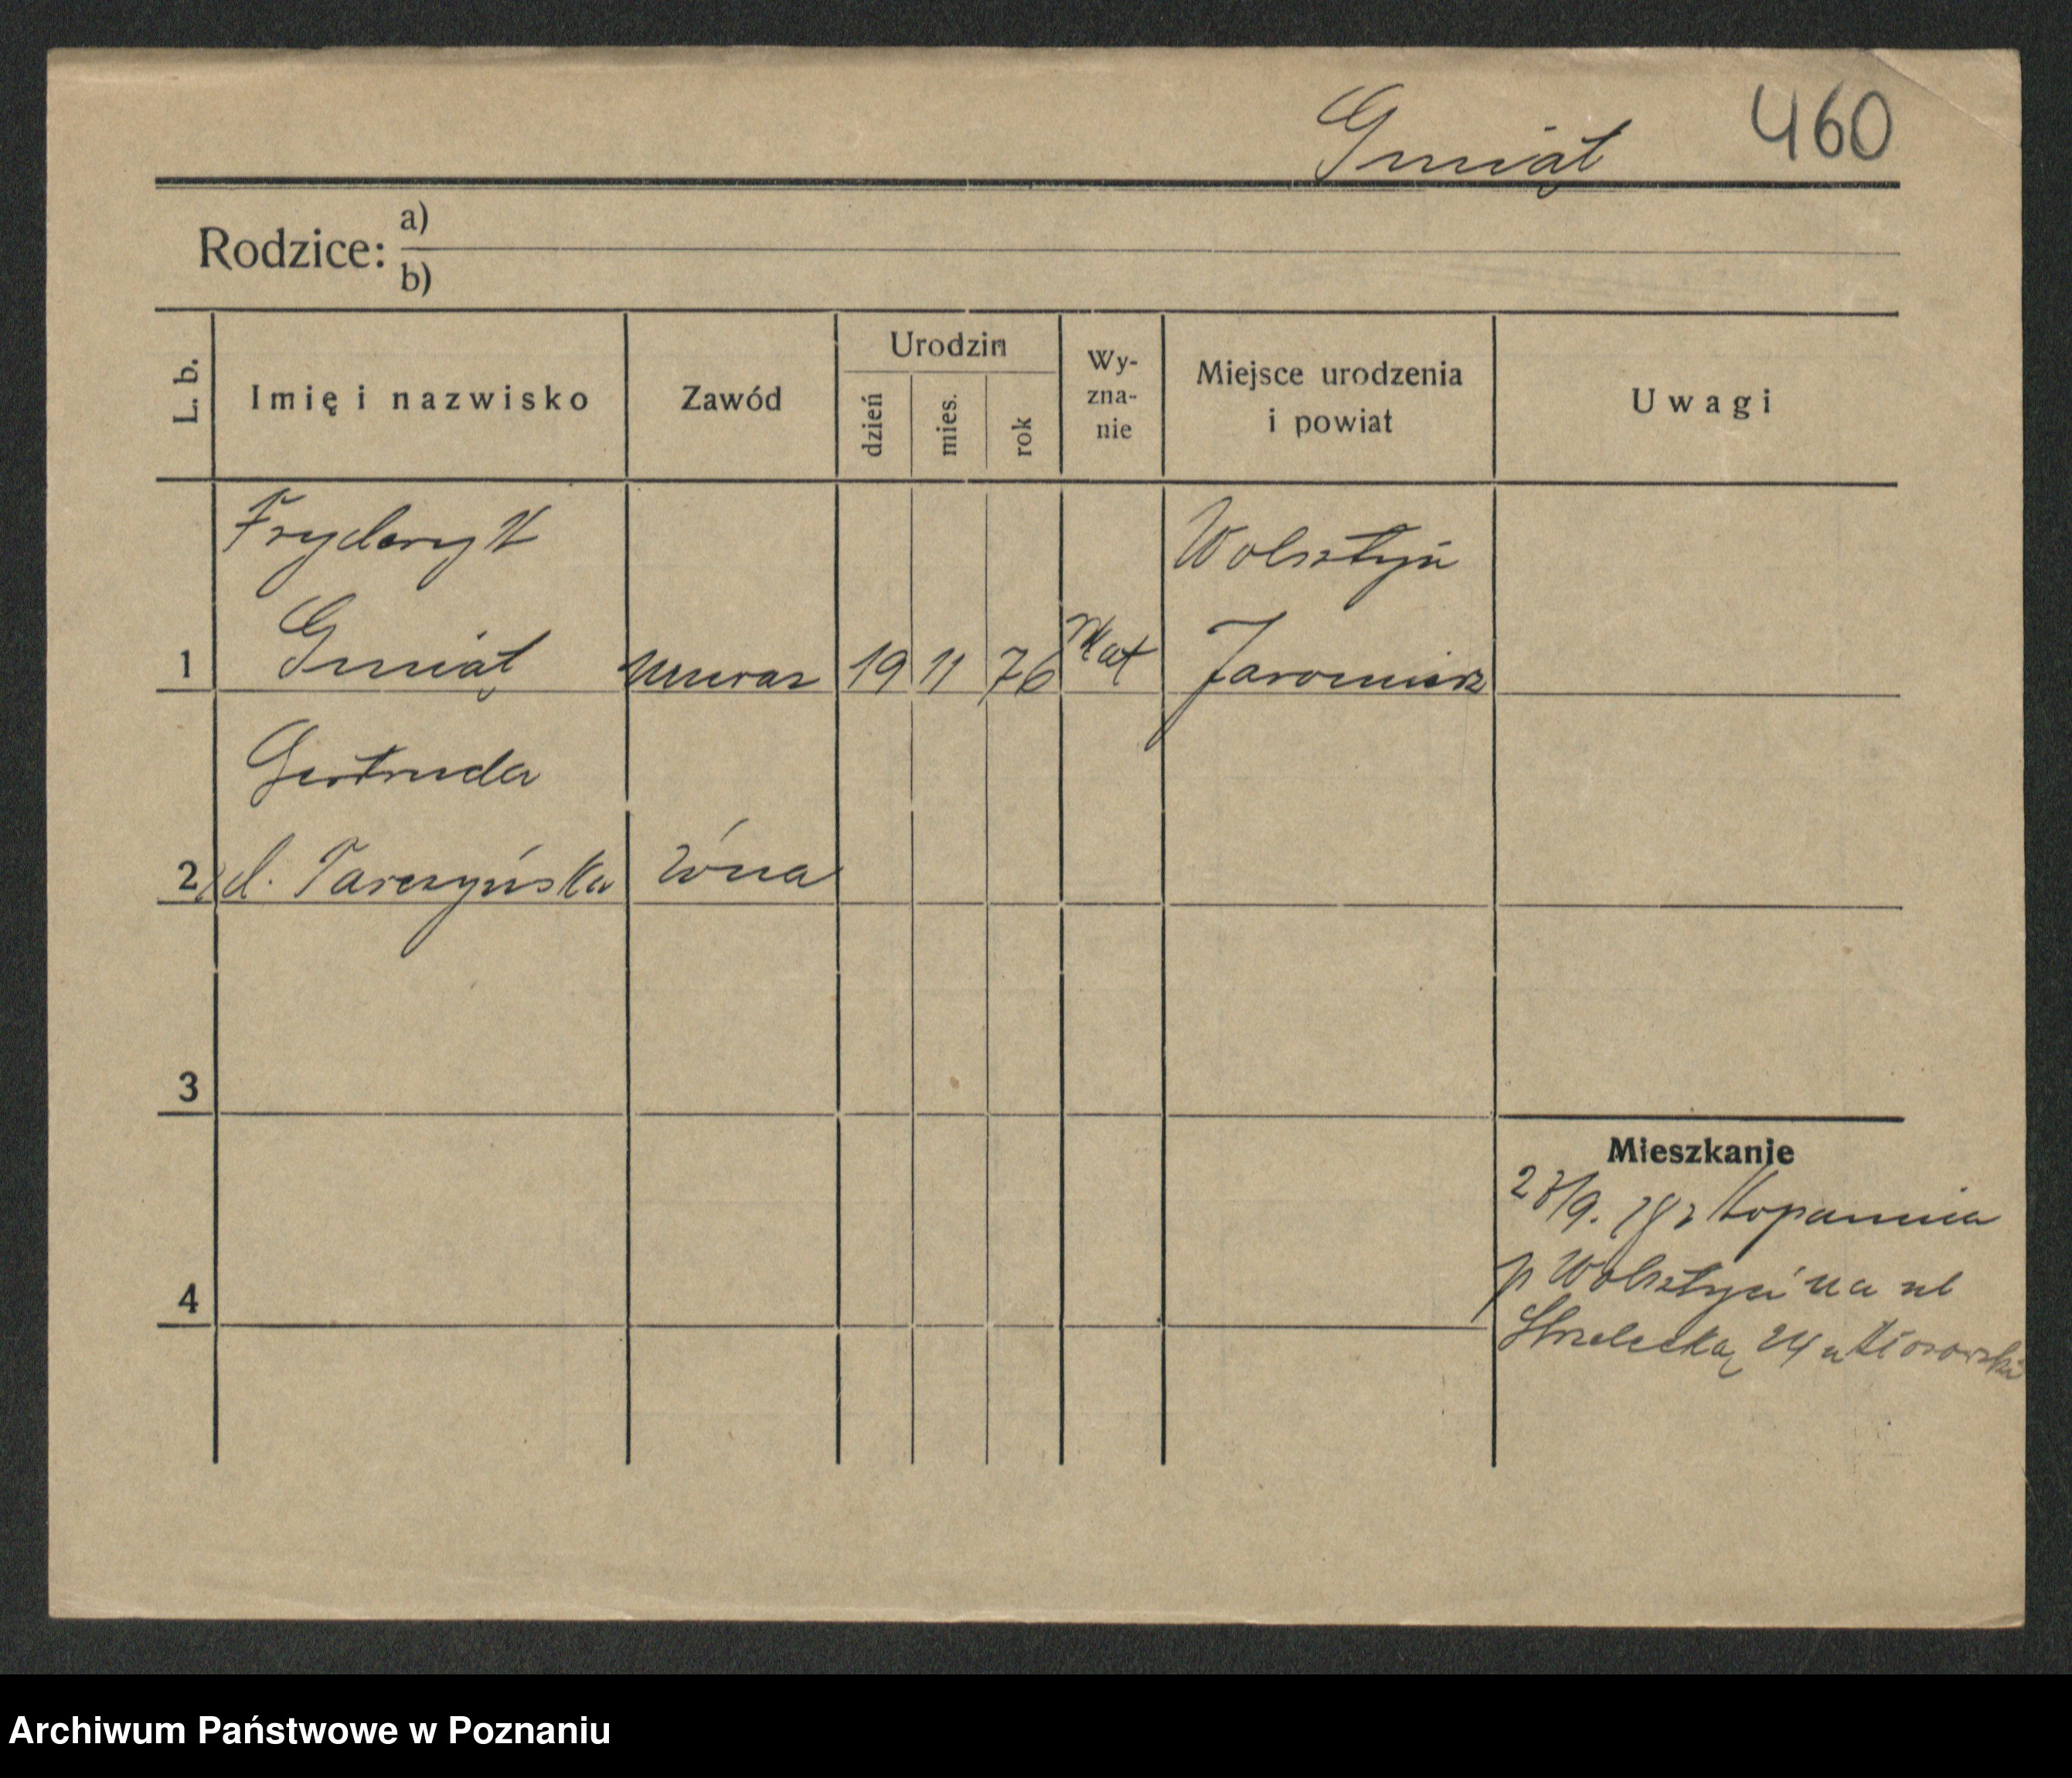 Gmiąt 460
Rodzice: a)
b)
L. b. Imię i nazwisko Zawód Urodzin dzień mies. rok Wy-zna-nie Miejsce urodzenia i powiat Uwagi
Fryderyk Wolsztyn
1 Gmiąt murarz 19 11 76 kat Jaromierz
Gertruda
2 zd. Tarczyńska żona
3
Mieszkanie
Kopanica
4 p Wolsztyn na ul
Strzelecką 24 u
Archiwum Państwowe w Poznaniu